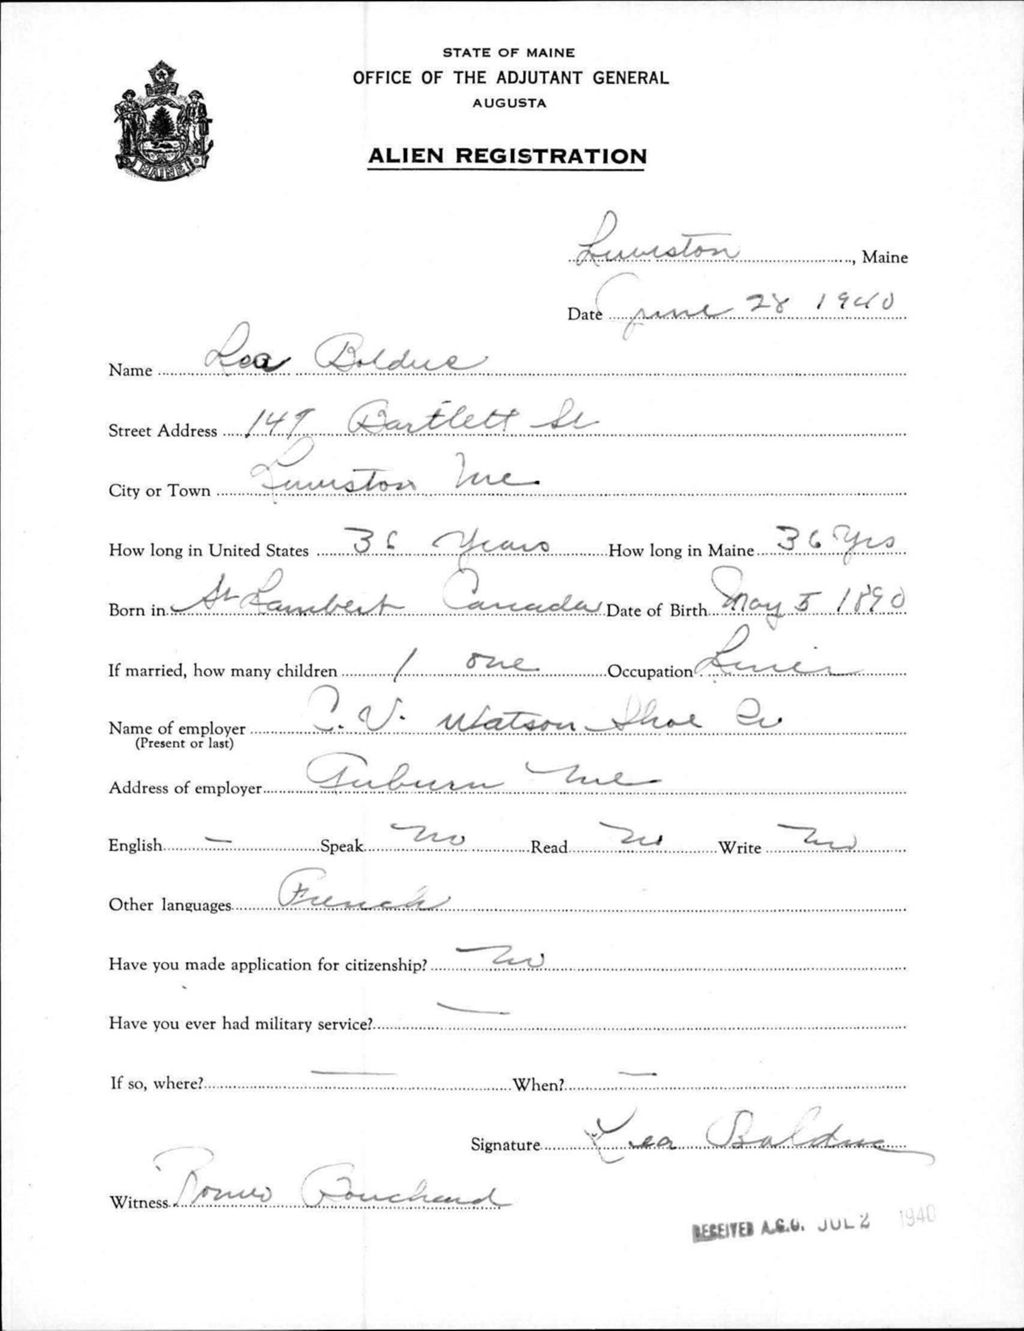 STATE OF MAINE
OFFICE OF THE ADJUTANT GENERAL
AUGUSTA
ALIEN REGISTRATION
MAINE
Lewiston, Maine
Date June 28 1940
Name Lea Bolduc
Street Address 149 Bartlett St
City or Town Lewiston Me.
How long in United States 36 Years How long in Maine 36 Yrs
Born in St Lambert Canada Date of Birth May 5 1890
If married, how many children 1 one Occupation
Name of employer C. V. Watson Shoe Co
(Present or last)
Address of employer Auburn Me
English — Speak No Read No Write No
Other languages French
Have you made application for citizenship? No
Have you ever had military service? —
If so, where? — When? —
Signature Lea Bolduc
Witness Romeo Bouchard
RECEIVED A.G.O. JUL 2 1940